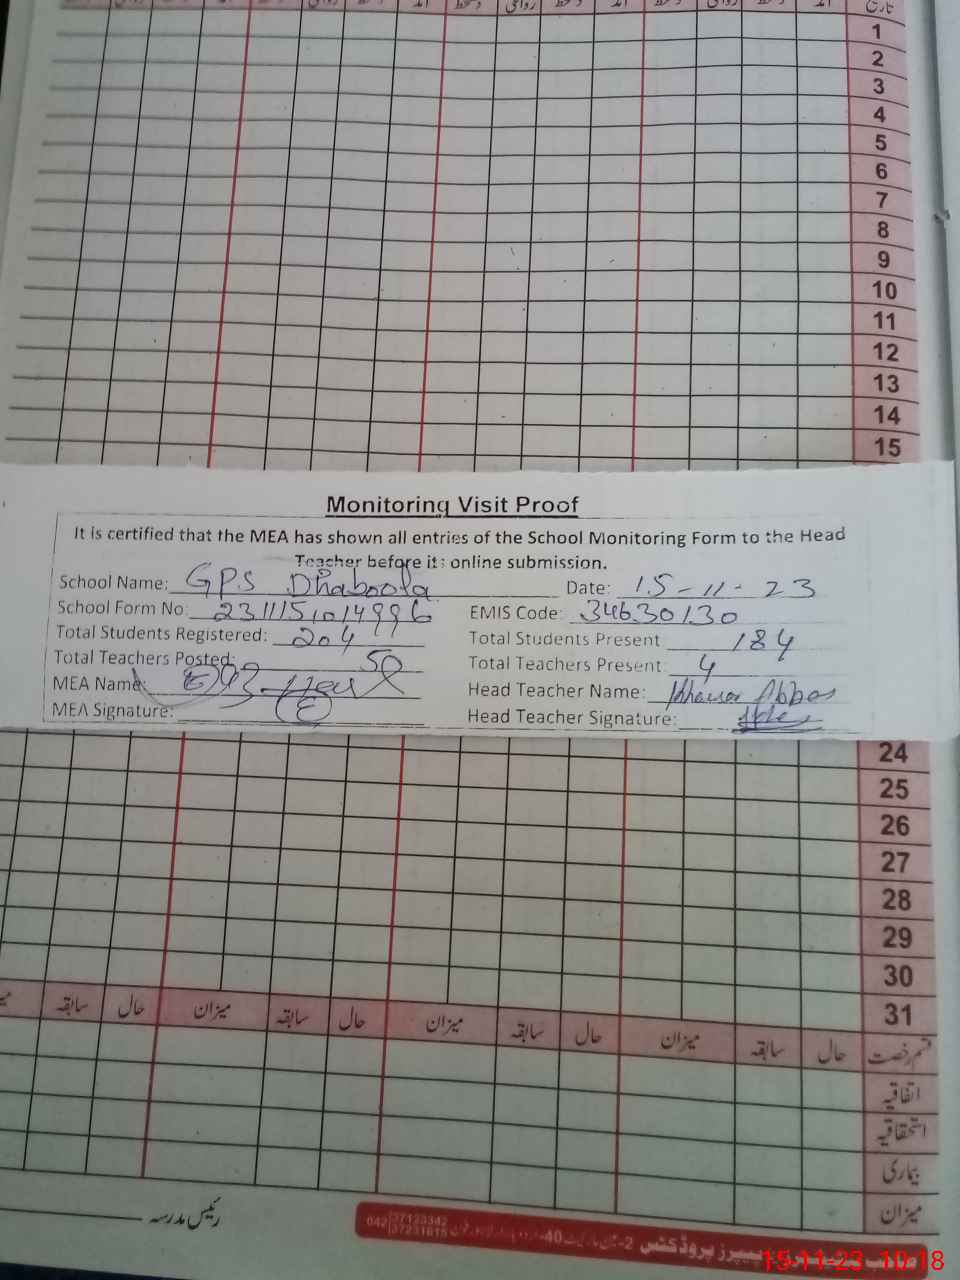 تاریخ
1
2
3
4
5
6
7
8
9
10
11
12
13
14
15
Monitoring Visit Proof
It is certified that the MEA has shown all entries of the School Monitoring Form to the Head
Teacher before its online submission.
School Name: GPS Dhaboola Date: 15-11-23
School Form No: 2311151014996 EMIS Code: 34630130
Total Students Registered: 204 Total Students Present 184
Total Teachers Posted: 50 Total Teachers Present: 4
MEA Name: Head Teacher Name: Khawar Abbas
MEA Signature: Head Teacher Signature:
24
25
26
27
28
29
30
31
حال سابقہ میزان حال سابقہ میزان حال سابقہ میزان حال سابقہ
قسم رخصت
اتفاقیہ
استحقاقیہ
بیماری
میزان
رئیس مدرسہ
042 37123342
37231615
پیپرز پروڈکٹس
15-11-23 10:18